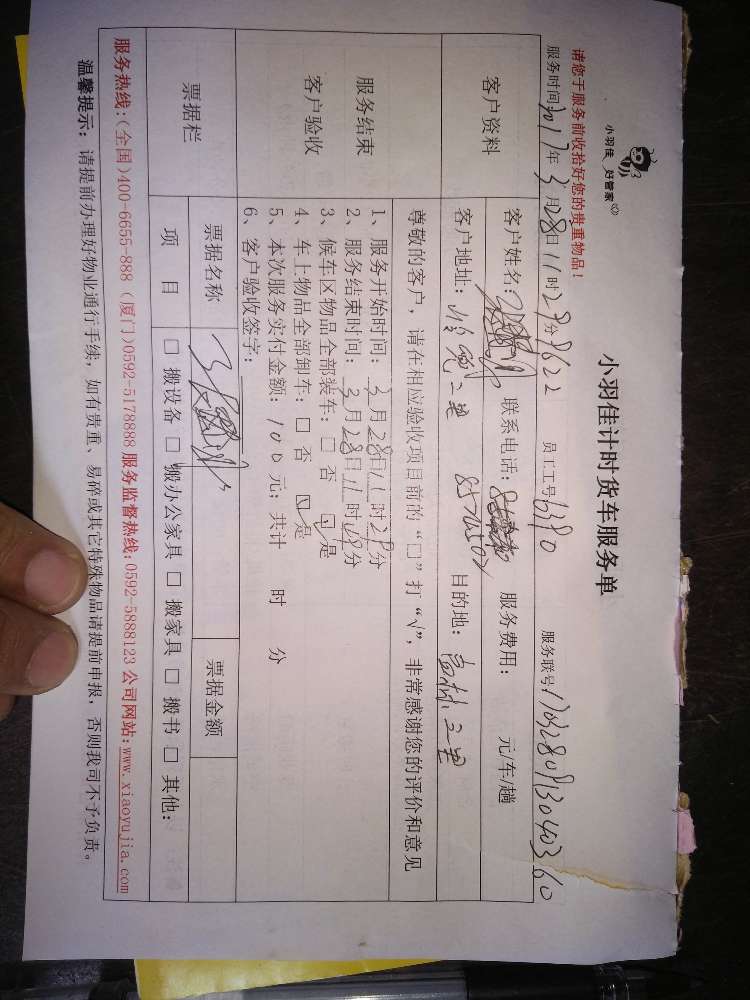 小羽佳 好管家
小羽佳计时货车服务单
请您于服务前收拾好您的贵重物品！
服务时间：2017年3月28日11时29分 8622 员工工号 6390 服务联号：1703280913040360
客户资料
客户姓名： 联系电话： 服务费用： 元/车/趟
客户地址： 二里 8570502 目的地： 高林三里
尊敬的客户，请在相应验收项目前的“□”打“√”，非常感谢您的评价和意见
服务结束
客户验收
1、服务开始时间：3月28日11时29分
2、服务结束时间：3月28日 时 分
3、候车区物品全部装车：□ 否 ☑ 是
4、车上物品全部卸车：□ 否 ☑ 是
5、本次服务实付金额：100 元；共计 时 分
6、客户验收签字：
票据栏
票据名称 票据金额
项 目 □ 搬设备 □ 搬办公家具 □ 搬家具 □ 搬书 □ 其他：
服务热线：(全国)400-6655-888 (厦门)0592-5178888 服务监督热线：0592-5888123 公司网站：www.xiaoyujia.com
温馨提示：请提前办理好物业通行手续，如有贵重、易碎或其它特殊物品请提前申报，否则我司不予负责。